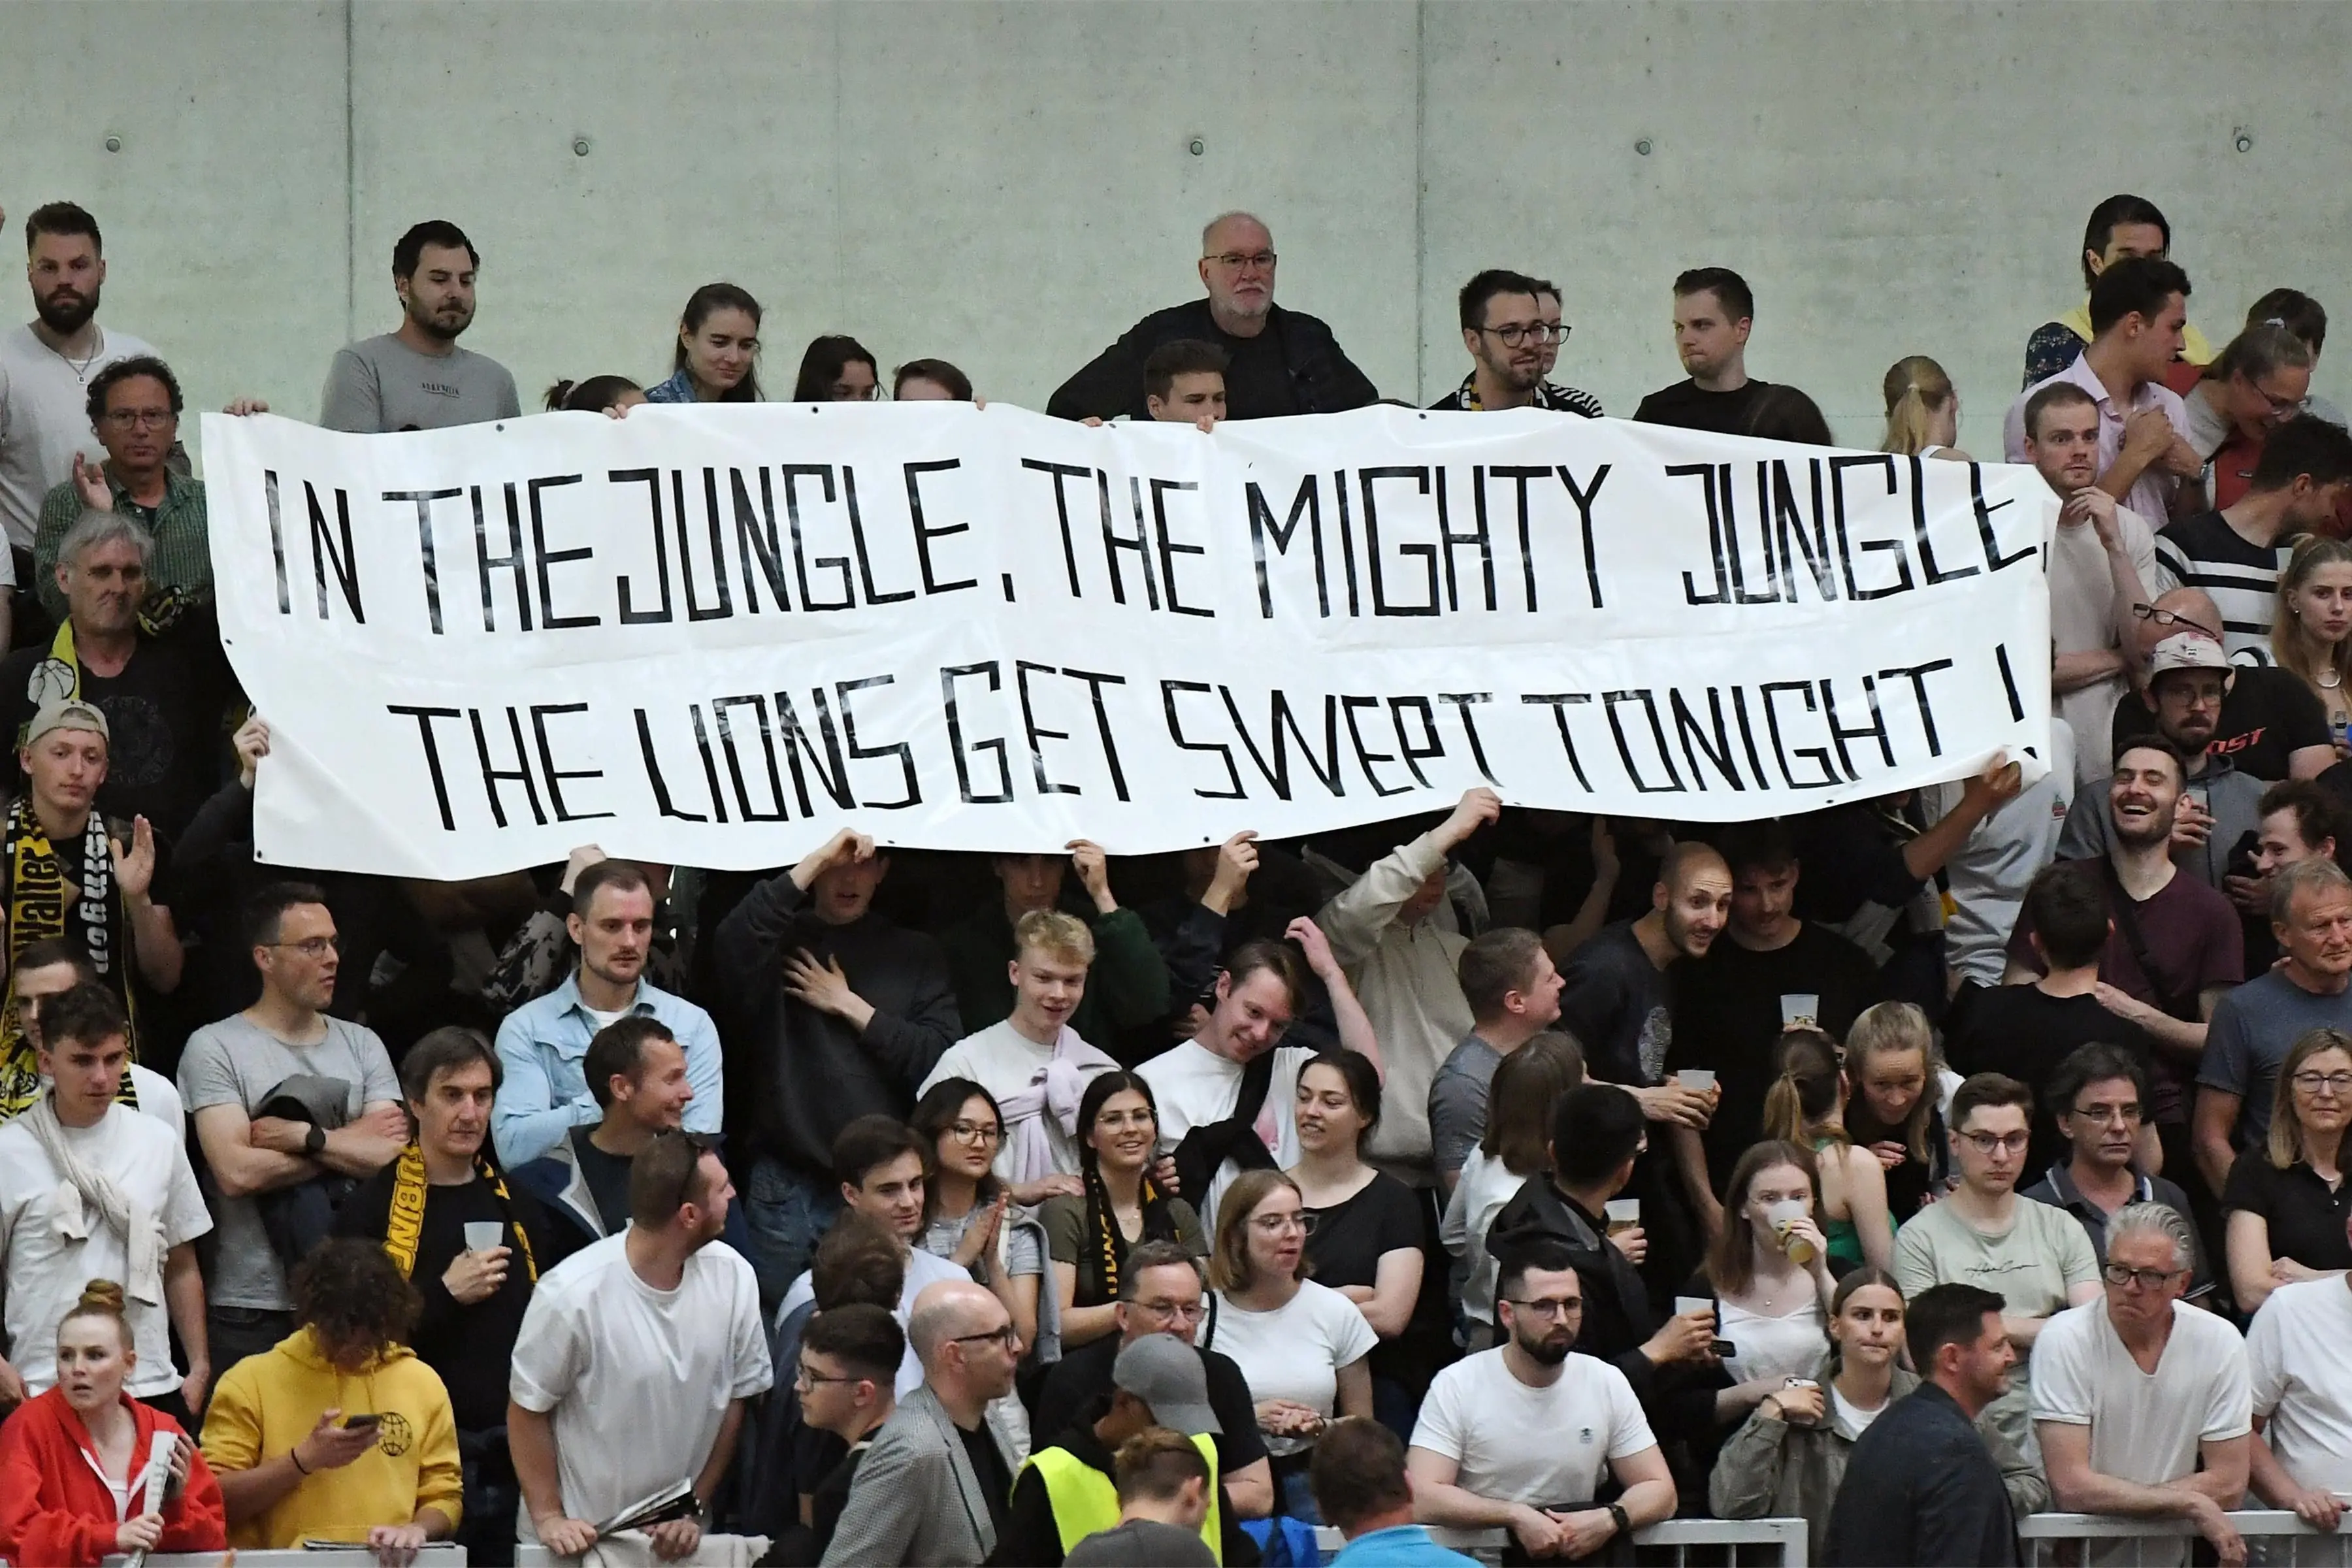 IN THE JUNGLE, THE MIGHTY JUNGLE,
THE LIONS GET SWEPT TONIGHT!
Walter
TÜBING